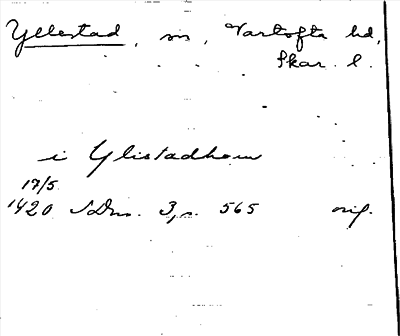 Yllestad, sn, Vartofta hd,
Skar. l.
i Ylistadhom
17/5
1420 SDns. 3, s. 565 orig.